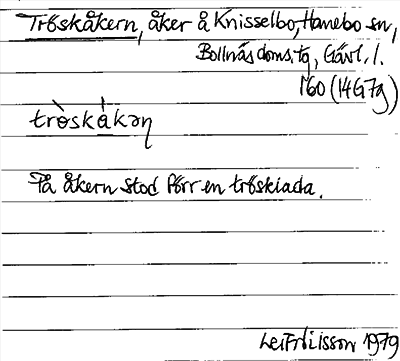 Tröskåkern, åker å Knisselbo, Hanebo sn,
Bollnäs doms.tg, Gävl. l.
160 (14G7g)
trö̀skå̀kəɳ
På åkern stod förr en trösklada.
Leif Nilsson 1979